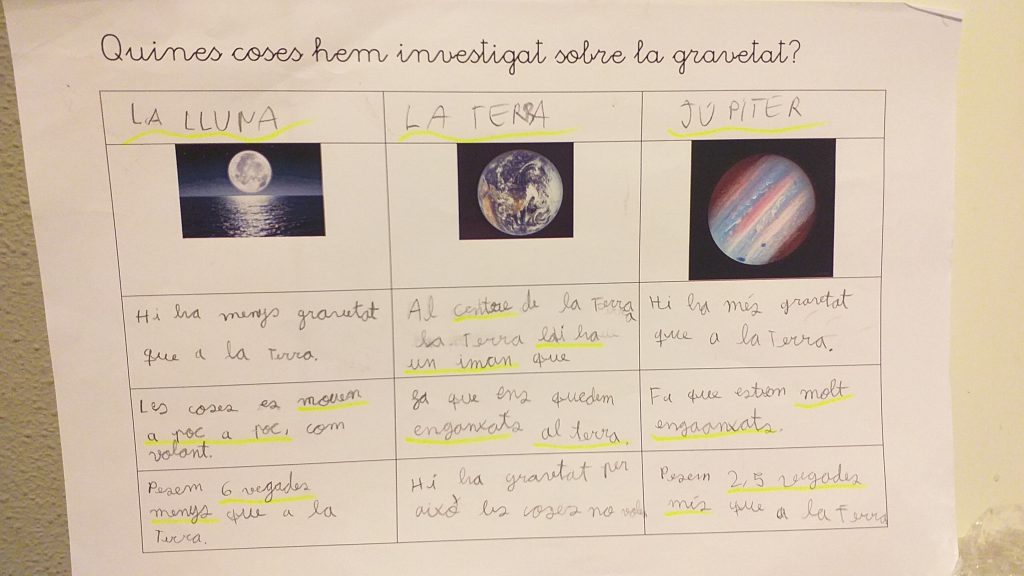 Quines coses hem investigat sobre la gravetat?
LA LLUNA
LA TERRA
JÚPITER
Hi ha menys gravetat
que a la Terra.
Al centre de la Terra
la Terra hi ha
un iman que
Hi ha més gravetat
que a la Terra.
Les coses es mouen
a poc a poc, com
volant.
fa que ens quedem
enganxats al terra.
Fa que estiem molt
engaanxats.
Pesem 6 vegades
menys que a la
Terra.
Hi ha gravetat per
això les coses no volen
Pesem 2,5 vegades
més que a la Terra